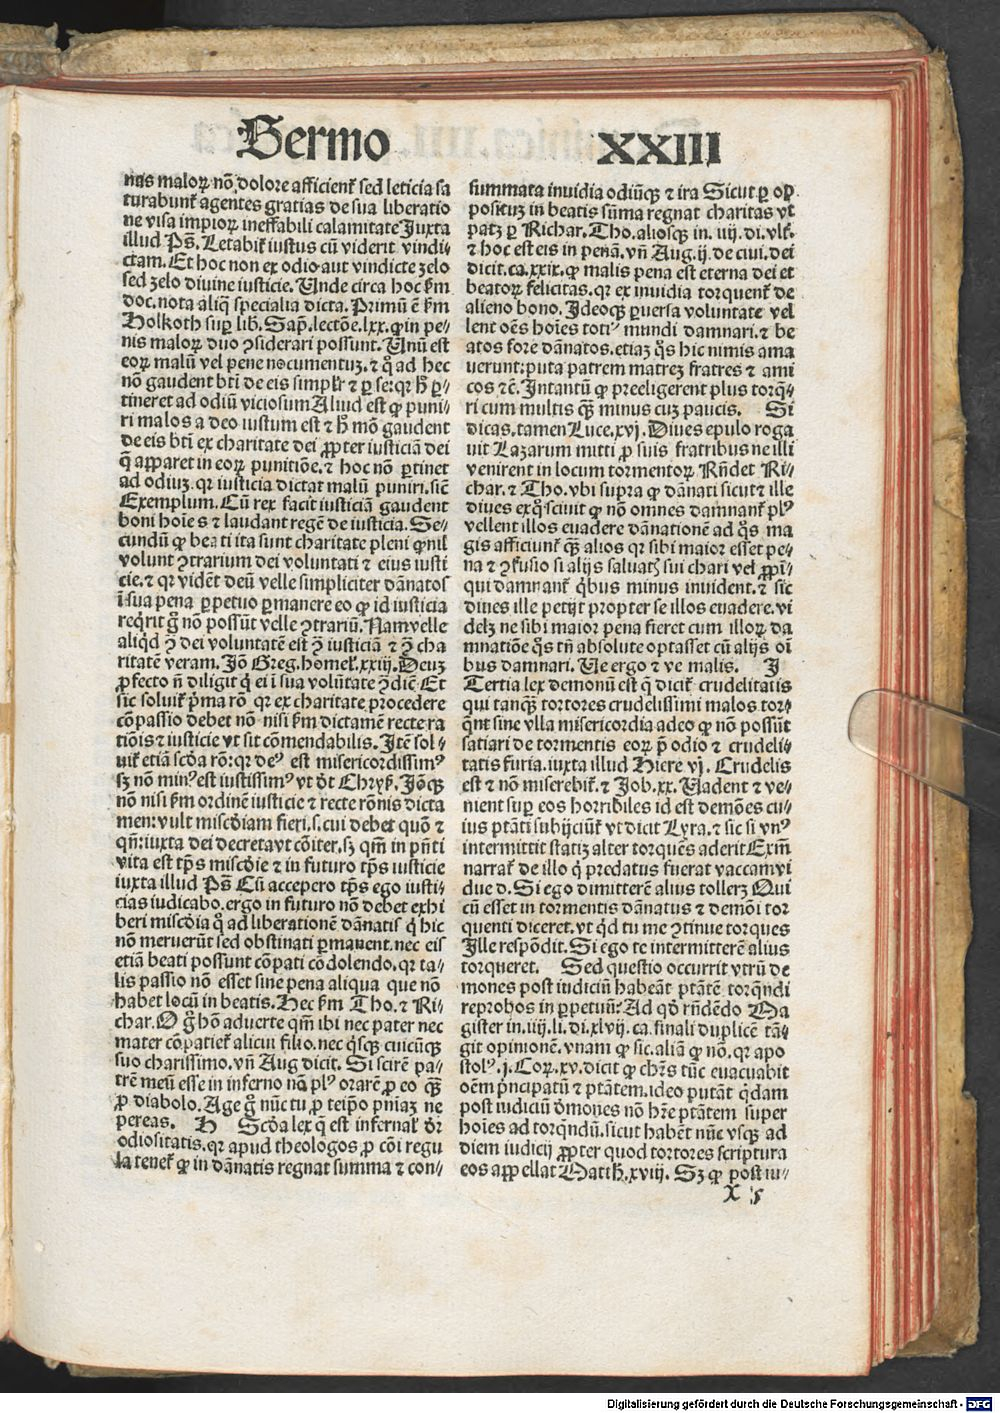 Sermo XXIII
nas maloꝝ nō dolore afficient᷑ sed leticia sa
turabunt᷑ agentes gratias de sua liberatio
ne visa impioꝝ ineffabili calamitate Juxta
illud Ps̄. Letabit᷑ iustus cū viderit vindi⸗
ctam. Et hoc non ex odio aut vindicte zelo
sed zelo diuine iusticie. Unde circa hoc ẜm
doc. nota aliq̄ specialia dicta. Primū ē ẜm
Holkoth suꝑ lib. Sap̄. lectōe. lxx. ꝙ in pe⸗
nis maloꝝ duo ꝯsiderari possunt. Unū est
eoꝝ malū vel pene nocumentuꝫ. ⁊ q̄ ad hec
nō gaudent bt̄i de eis simplr̄ ⁊ ꝑ se: qꝛ hͦ ꝑ⸗
tineret ad odiū viciosum Aliud est ꝙ puni⸗
ri malos a deo iustum est ⁊ hͦ mō gaudent
de eis bt̄i ex charitate dei ꝓpter iusticiā dei
q̄ apparet in eoꝝ punitiōe. ⁊ hoc nō ꝑtinet
ad odiuꝫ. qꝛ iusticia dictat malū puniri. sic̄
Exemplum. Cū rex facit iusticiā gaudent
boni hoīe s ⁊ laudant regē de iusticia. Se⸗
cundū ꝙ bea ti ita sunt charitate pleni ꝙ nil
volunt ꝯtrarium dei voluntati ⁊ eius iusti
cie. ⁊ qꝛ vidēt deū velle simpliciter dānatos
ī sua pena ꝑpetuo ꝑmanere eo ꝙ id iusticia
req̇rit g̊ nō possūt velle ꝯtrariū. Nam velle
aliqd̓ ꝯ̄ dei voluntatē est ꝯ̄ iusticiā ⁊ ꝯ̄ cha
ritatē veram. Jō Greg. homel. xxiij. Deuꝫ
ꝓfecto n̄ diligit q̇ ei ī sua volūtate ꝯ̄dic̄ Et
sic soluit᷑ pͥma rō qꝛ ex charitate procedere
cōpassio debet nō nisi ẜm dictamē recte ra
tiōis ⁊ iusticie vt sit cōmendabilis. Jtē sol⸗
uit᷑ etiā scd̓a rō: qꝛ deꝰ est misericordissimꝰ
sꝫ nō minꝰ est iustissimꝰ vt dt̄ Chryß. Jōqꝫ
nō nisi ẜm ordinē iusticie ⁊ recte rōnis dicta
men: vult misc̓diam fieri. s. cui debet quō ⁊
qn̄: iuxta dei decreta vt cōiter. sꝫ qm̄ in pn̄ti
vita est tp̄s misc̓die ⁊ in futuro tp̄s iusticie
iuxta illud Ps̄ Cū accepero tp̄s ego iusti⸗
cias iudicabo. ergo in futuro nō debet exhi
beri misc̓dia q̄ ad liberationē dānatis q̇ hic
nō meruerūt sed obstinati ꝑmanent. nec eis
etiā beati possunt cōpati cōdolendo. qꝛ ta⸗
lis passio nō esset sine pena aliqua que nō
habet locū in beatis. Hec ẜm Tho. ⁊ Ri⸗
char. O g̊ hō aduerte qm̄ ibi nec pater nec
mater cōpatiet᷑ alicui filio. nec q̇sqꝫ cuicūqꝫ
suo charissimo. vn̄ Aug dicit. Si scirē pa⸗
trē meū esse in inferno nō plꝰ orarē ꝓ eo qꝫ̄
ꝓ diabolo. Age g̊ nūc tu ꝓ teip̄o pn̄iaꝫ ne
pereas. H Scd̓a lex q̄ est infernal dr̄
odiositatis. qꝛ apud theologos ꝓ cōi regu
la tenet᷑ ꝙ in dānatis regnat summa ⁊ con⸗
summata inuidia odiūqꝫ ⁊ ira Sicut ꝑ op
positum in beatis sūma regnat charitas vt
patꝫ ꝑ Richar. Tho. aliosqꝫ in. iiij. di. vlt᷑.
⁊ hoc est eis in penā. vn̄ Aug. ij. de ciui. dei
dicit. ca. xxix. ꝙ malis pena est eterna dei et
beatoꝝ felicitas. qꝛ ex inuidia torquent᷑ de
alieno bono. Jdeoqꝫ ꝑuersa voluntate vel
lent oēs hoīes totiꝰ mundi damnari. ⁊ be
atos fore dānatos. etiaꝫ q̊s hic nimis ama
uerunt: puta patrem matreꝫ fratres ⁊ ami
cos ⁊c̄. Jntantū ꝙ preeligerent plus torq̄⸗
ri cum multis qꝫ̄ minus cuꝫ paucis. Si
dicas. tamen Luce. xvj. Diues epulo roga
uit Lazarum mitti ꝓ suis fratribus ne illi
venirent in locum tormentoꝝ Rn̄det Ri⸗
char. ⁊ Tho. vbi supra ꝙ dānati sicut ⁊ ille
diues ex q̊ sciuit ꝙ nō omnes damnant᷑ plꝰ
vellent illos euadere dānationē ad q̊s ma
gis afficiunt᷑ qꝫ̄ alios qꝛ sibi maior esset pe⸗
na ⁊ ꝯfusio si alijs saluatis sui chari vel ꝓpī⸗
qui damnant᷑ q̇bus minus inuident. ⁊ sic
diues ille petijt propter se illos euadere. vi
delꝫ ne sibi maior pena fieret cum illoꝝ da
mnatiōe q̊s tn̄ absolute optasset cū alijs oī
bus damnari. Ue ergo ⁊ ve malis. J
Tertia lex demonū est q̄ dicit᷑ crudelitatis
qui tanqꝫ̄ tortores crudelissimi malos tor⸗
q̄nt sine vlla misericordia adeo ꝙ nō possūt
satiari de tormentis eoꝝ p̄ odio ⁊ crudeli⸗
tatis furia. iuxta illud Hiere vj. Crudelis
est ⁊ nō miserebit᷑. ⁊ Job. xx. Uadent ⁊ ve⸗
nient suꝑ eos horribiles id est demōes cu⸗
ius ptāti subijciūt᷑ vt dicit Lyra. ⁊ sic si vnꝰ
intermittit statiꝫ alter torquēs aderit Exm̄
narrat᷑ de illo q̇ p̄datus fuerat vaccam vi
due d. Si ego dimitterē alius tollerꝫ Qui
cū esset in tormentis dānatus ⁊ demōi tor
quenti diceret. vt qd̓ tu me ꝯtinue torques
Jlle respōdit. Si ego te intermitterē alius
torqueret. Sed questio occurrit vtrū de
mones post iudiciū habeāt ptātē torq̄ndi
reprobos in ꝑpetuū: Ad qd̓ rn̄dēdo Ma
gister in. iiij. li. di. xlvij. ca. finali duplicē tā⸗
git opinionē. vnam ꝙ sic. aliā ꝙ nō. qꝛ apo
stolꝰ. j. Coꝝ. xv. dicit ꝙ chr̄s tūc euacuabit
oēm pͥncipatū ⁊ ptātem. ideo putāt q̇dam
post iudiciū dͤmones nō hr̄e ptātem super
hoīes ad torq̄ndū. sicut habēt nūc vsqꝫ ad
diem iudicij ꝓpter quod tortores scriptura
eos appellat Matth. xviij. Sꝫ ꝙ post iu⸗
X 5
Digitalisierung gefördert durch die Deutsche Forschungsgemeinschaft - DFG